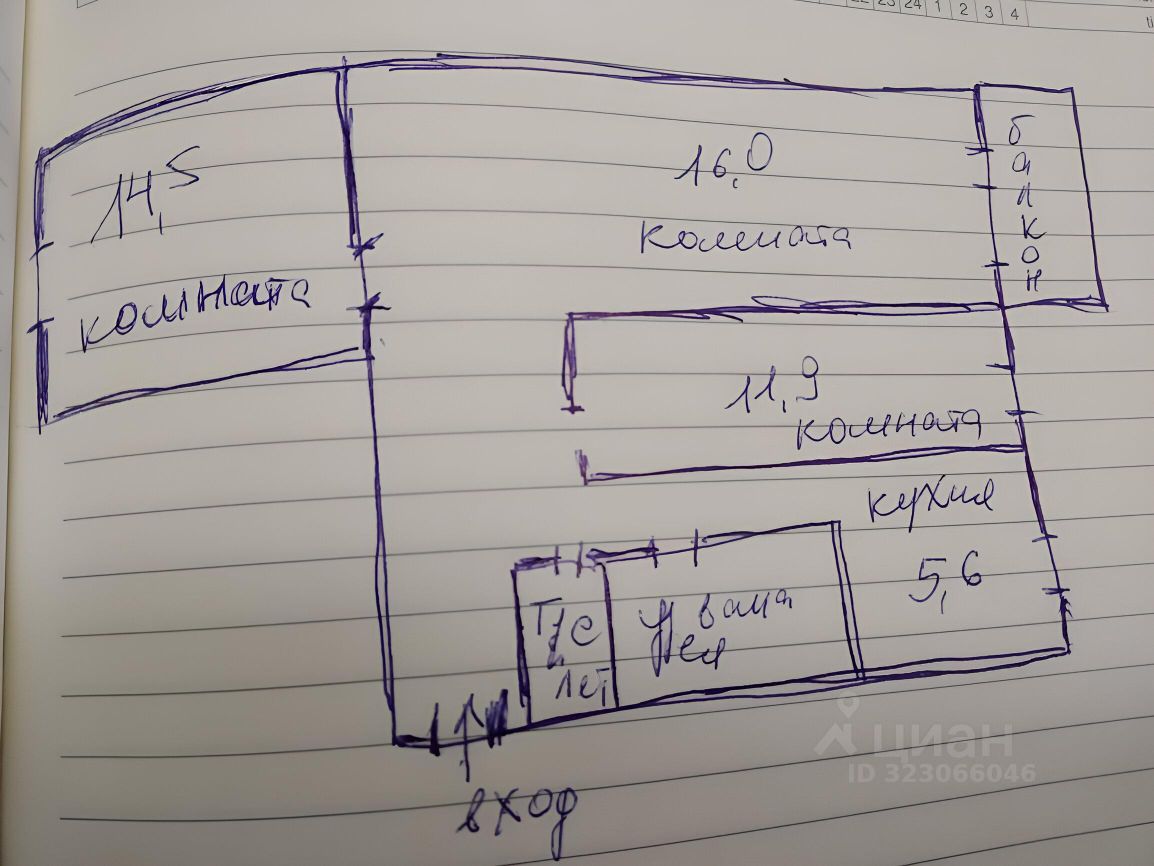 22 23 24 1 2 3 4
14,5
комната
16,0
комната
балкон
11,9
комната
кухня
5,6
вход
циан
ID 323066046